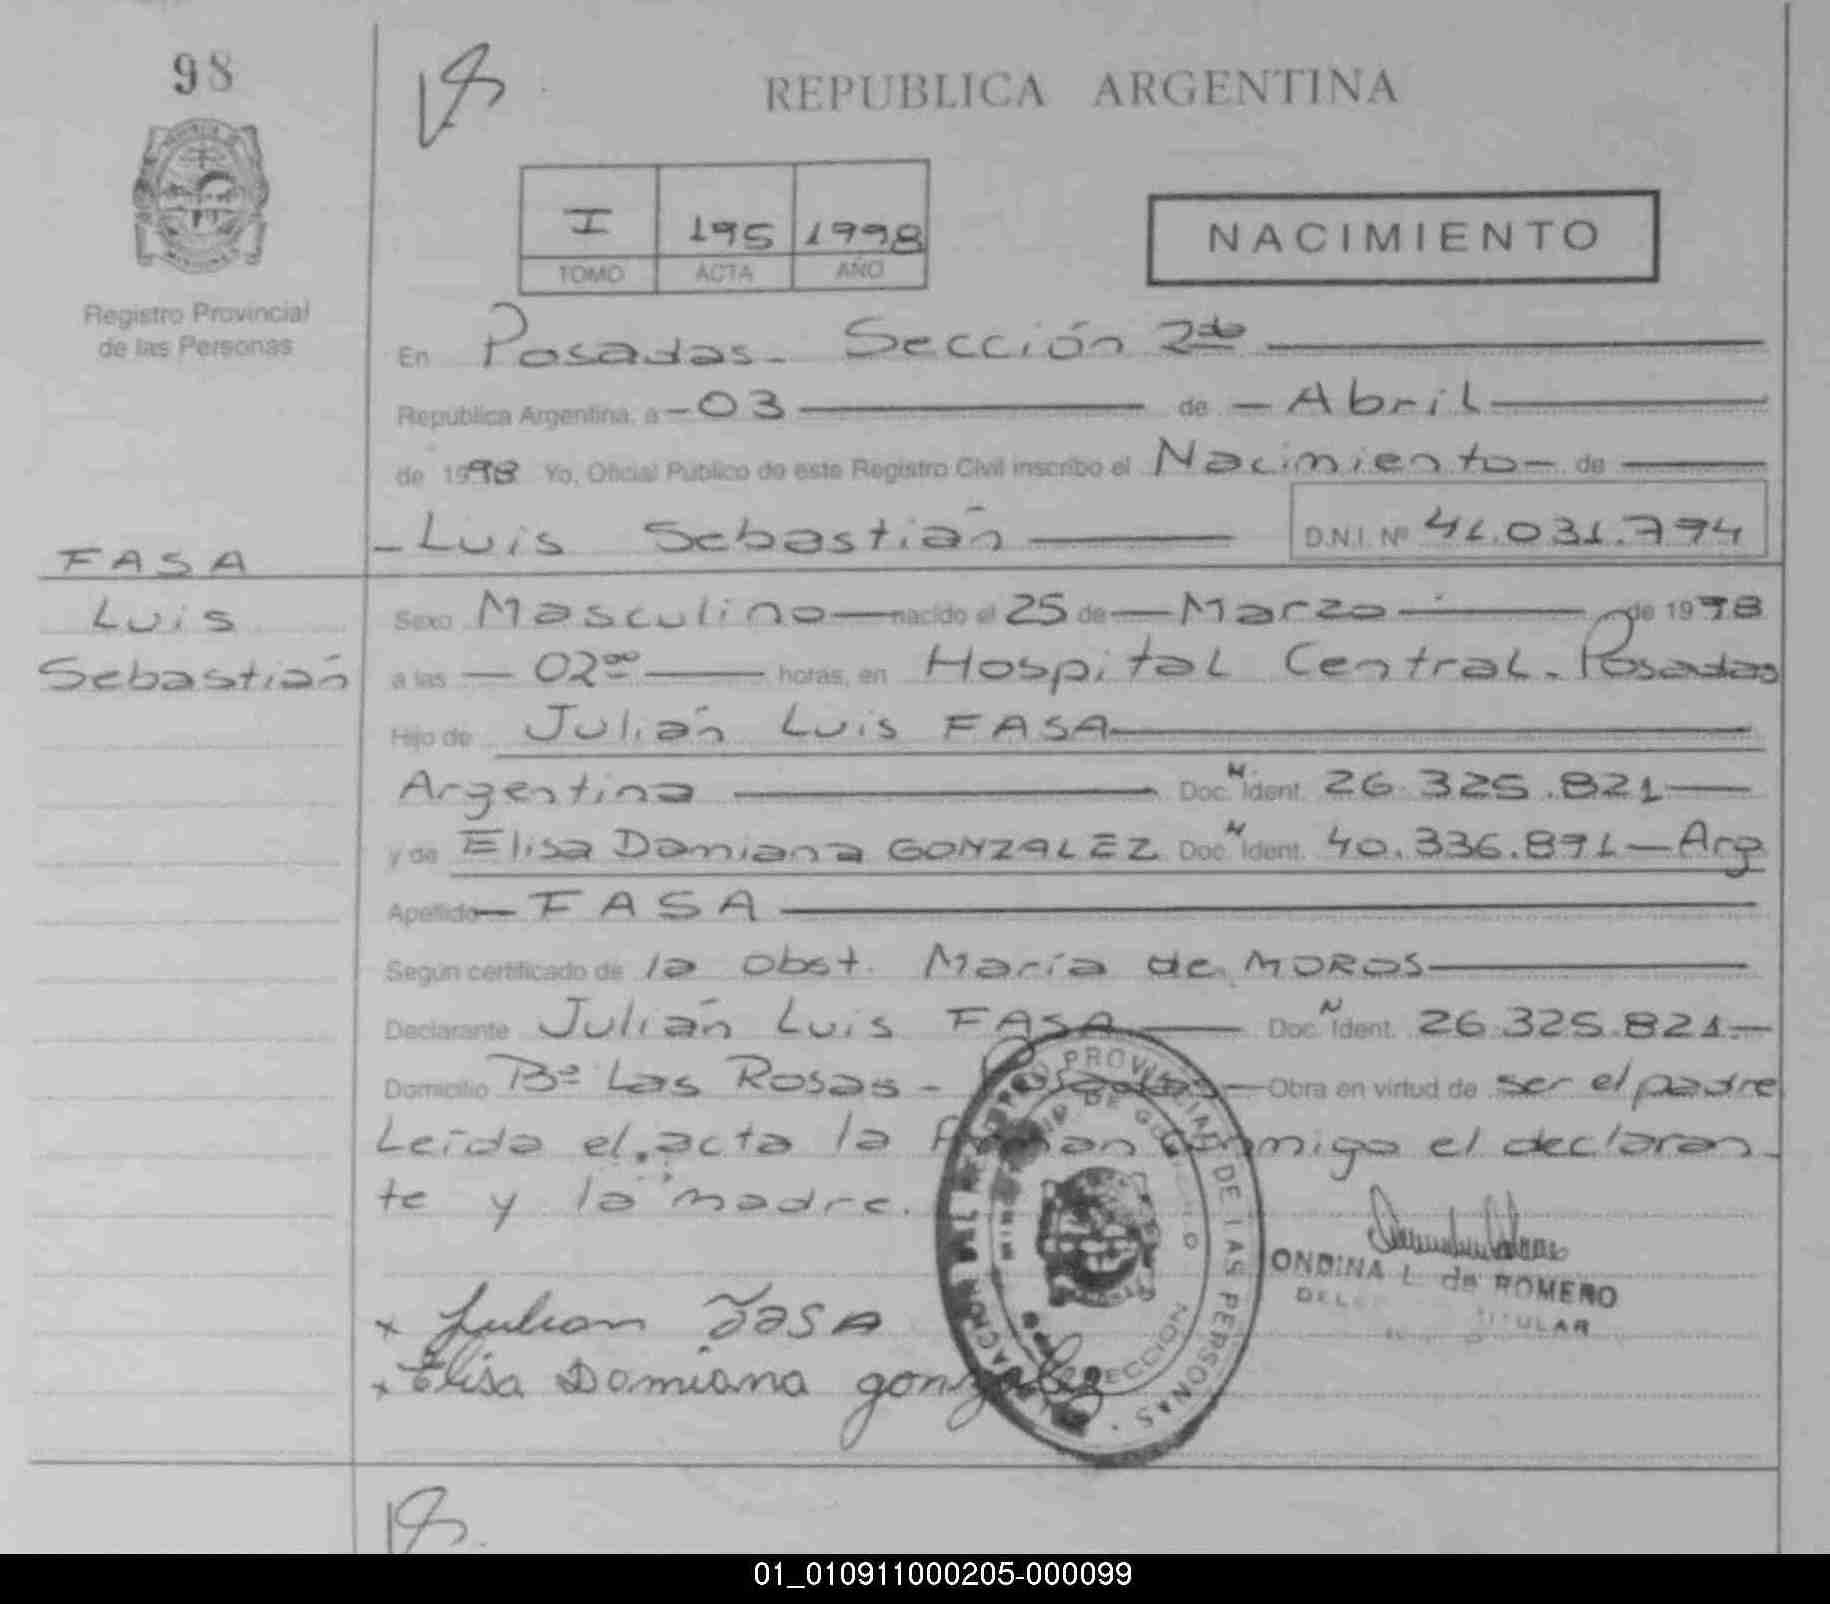 98
REPUBLICA ARGENTINA
I 195 1998
TOMO ACTA AÑO
NACIMIENTO
Registro Provincial
de las Personas
En Posadas - Sección 2da
Republica Argentina, a - 03 de - Abril
de 1998 Yo, Oficial Publico de este Registro Civil inscribo el Nacimiento - de
- Luis Sebastián D.N.I. Nº 41.031.794
FASA
Luis
Sebastián
Sexo Masculino nacido el 25 de Marzo de 1998
a las 02⁰⁰ horas, en Hospital Central - Posadas
Hijo de Julián Luis FASA
Argentina Doc. N Ident. 26.325.821
y de Elisa Damiana GONZALEZ Doc. N Ident. 40.336.891 - Arg
Apellido - FASA
Según certificado de la obst. María de MOROS
Declarante Julián Luis FASA Doc. N Ident. 26.325.821.-
Domicilio Bº Las Rosas - Posadas - Obra en virtud de ser el padre
Leída el acta la firman conmigo el declaran-
te y la madre.
ONDINA L. de ROMERO
TITULAR
x Julian FASA
x Elisa Damiana gonzalez
PROVINCIAL DE LAS PERSONAS
DIRECCION
01_010911000205-000099